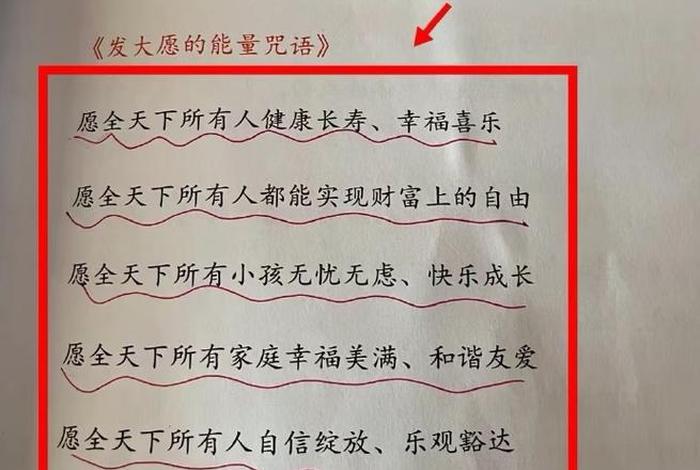 《发大愿的能量咒语》
愿全天下所有人健康长寿、幸福喜乐
愿全天下所有人都能实现财富上的自由
愿全天下所有小孩无忧无虑、快乐成长
愿全天下所有家庭幸福美满、和谐友爱
愿全天下所有人自信绽放、乐观豁达